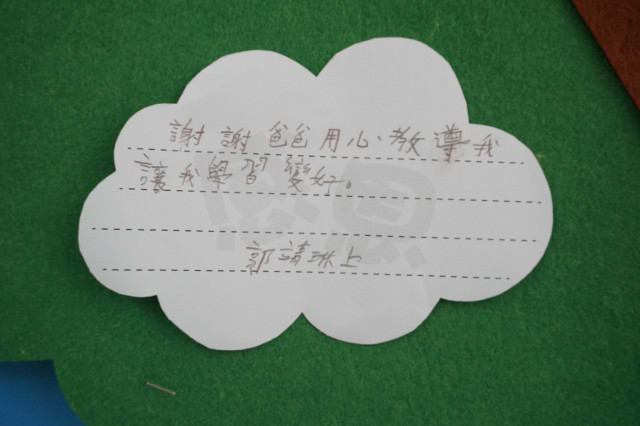 謝謝爸爸用心教導我
讓我學習變好。
郭請琳上
感恩